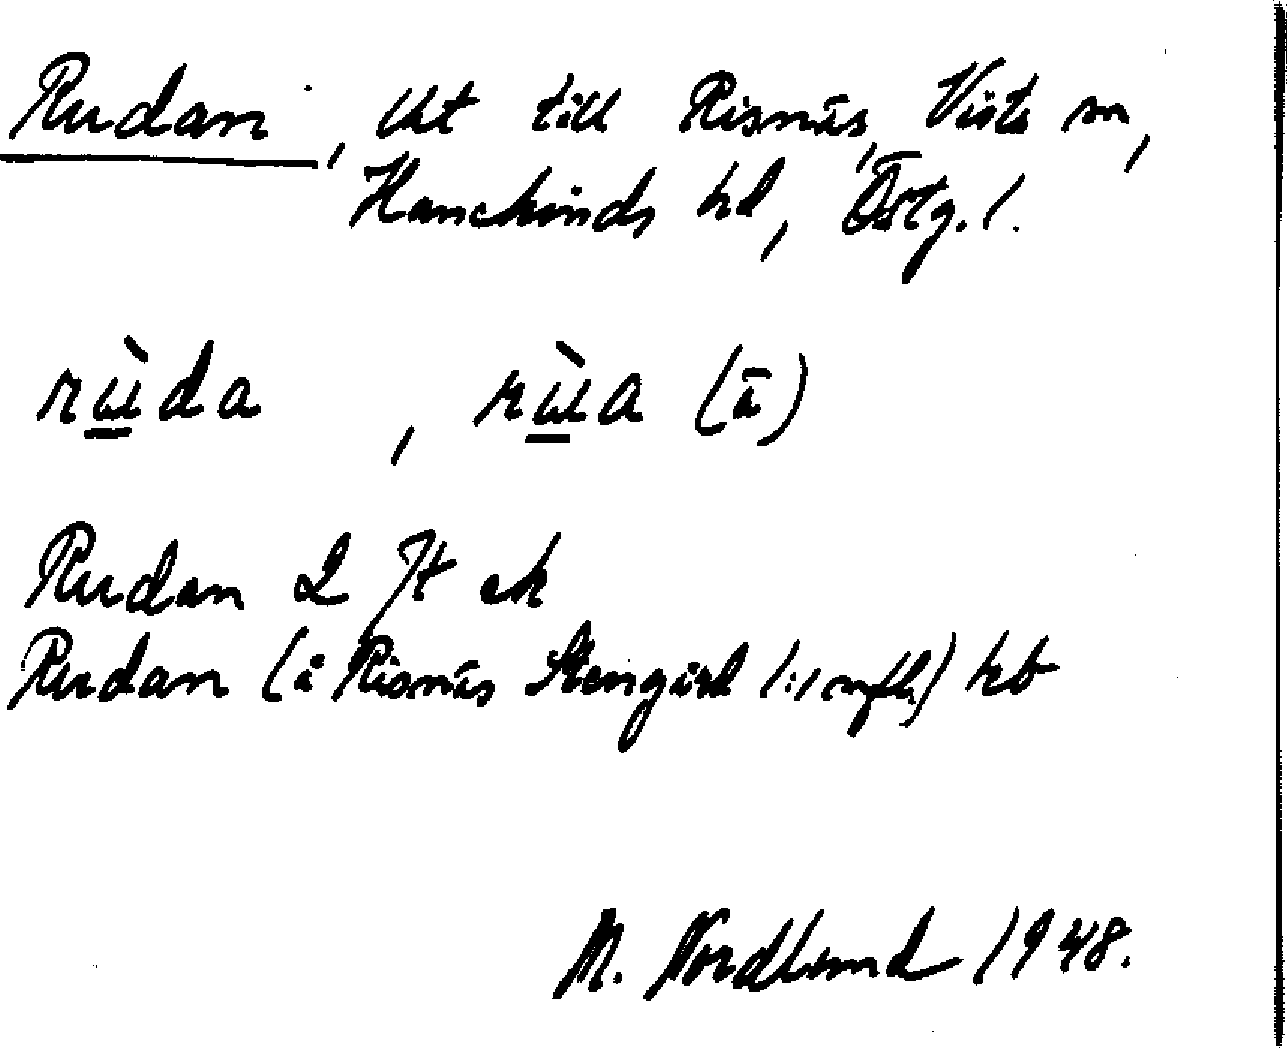 Rudan, lht till Risnäs, Vists sn,
Hanekinds hd, Östg. l.
rù̱da, rù̱a (ā)
Rudan 2 Jt ek
Rudan (å Risnäs Stengärd 1:1 mfl.) hb
M. Nordlund 1948.